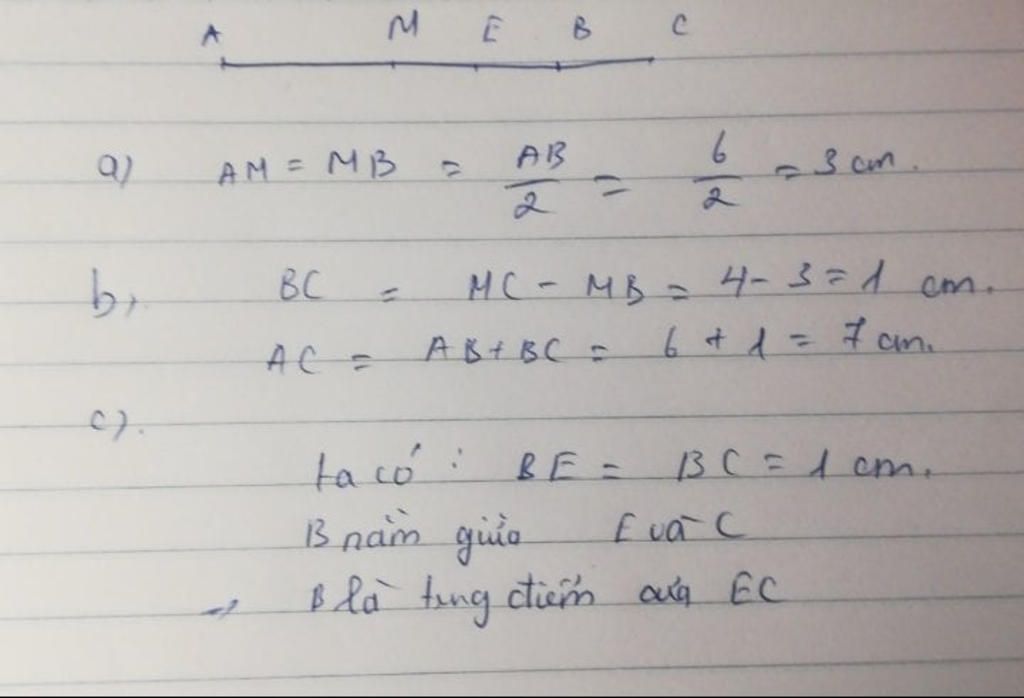 A M E B C
a) AM = MB = AB/2 = 6/2 = 3 cm.
b, BC = MC - MB = 4 - 3 = 1 cm.
AC = AB + BC = 6 + 1 = 7 cm.
c).
ta có : BE = BC = 1 cm.
B nằm giữa E và C
→ B là trung điểm của EC